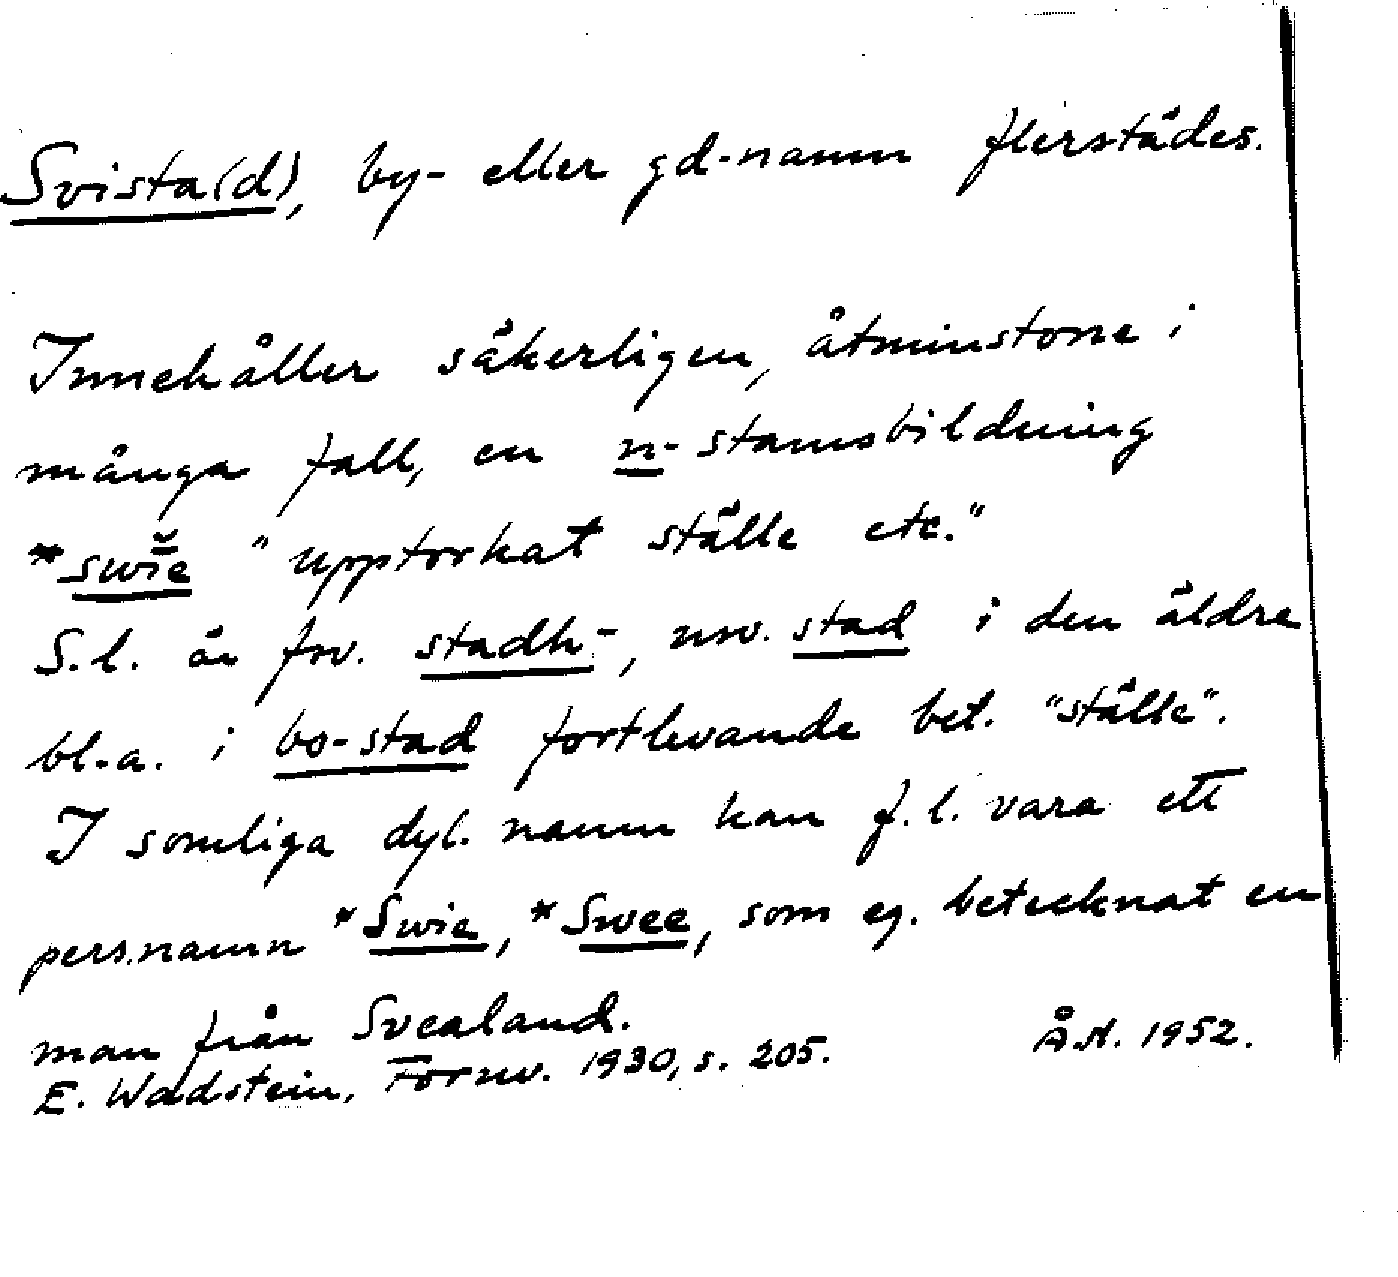 Svista(d), by- eller gd-namn flerstädes.
Innehåller säkerligen, åtminstone i
många fall, en n-stamsbildning
*swīe "upptorkat ställe etc."
S.l. är fsv. stadh-, nsv. stad i den äldre
bl.a. i bo-stad fortlevande bet. "ställe".
I somliga dyl. namn kan f.l. vara ett
pers.namn *Swie, *Swee, som eg. betecknat en
man från Svealand.
E. Wadstein, Fornv. 1930, s. 205. Å.N. 1952.